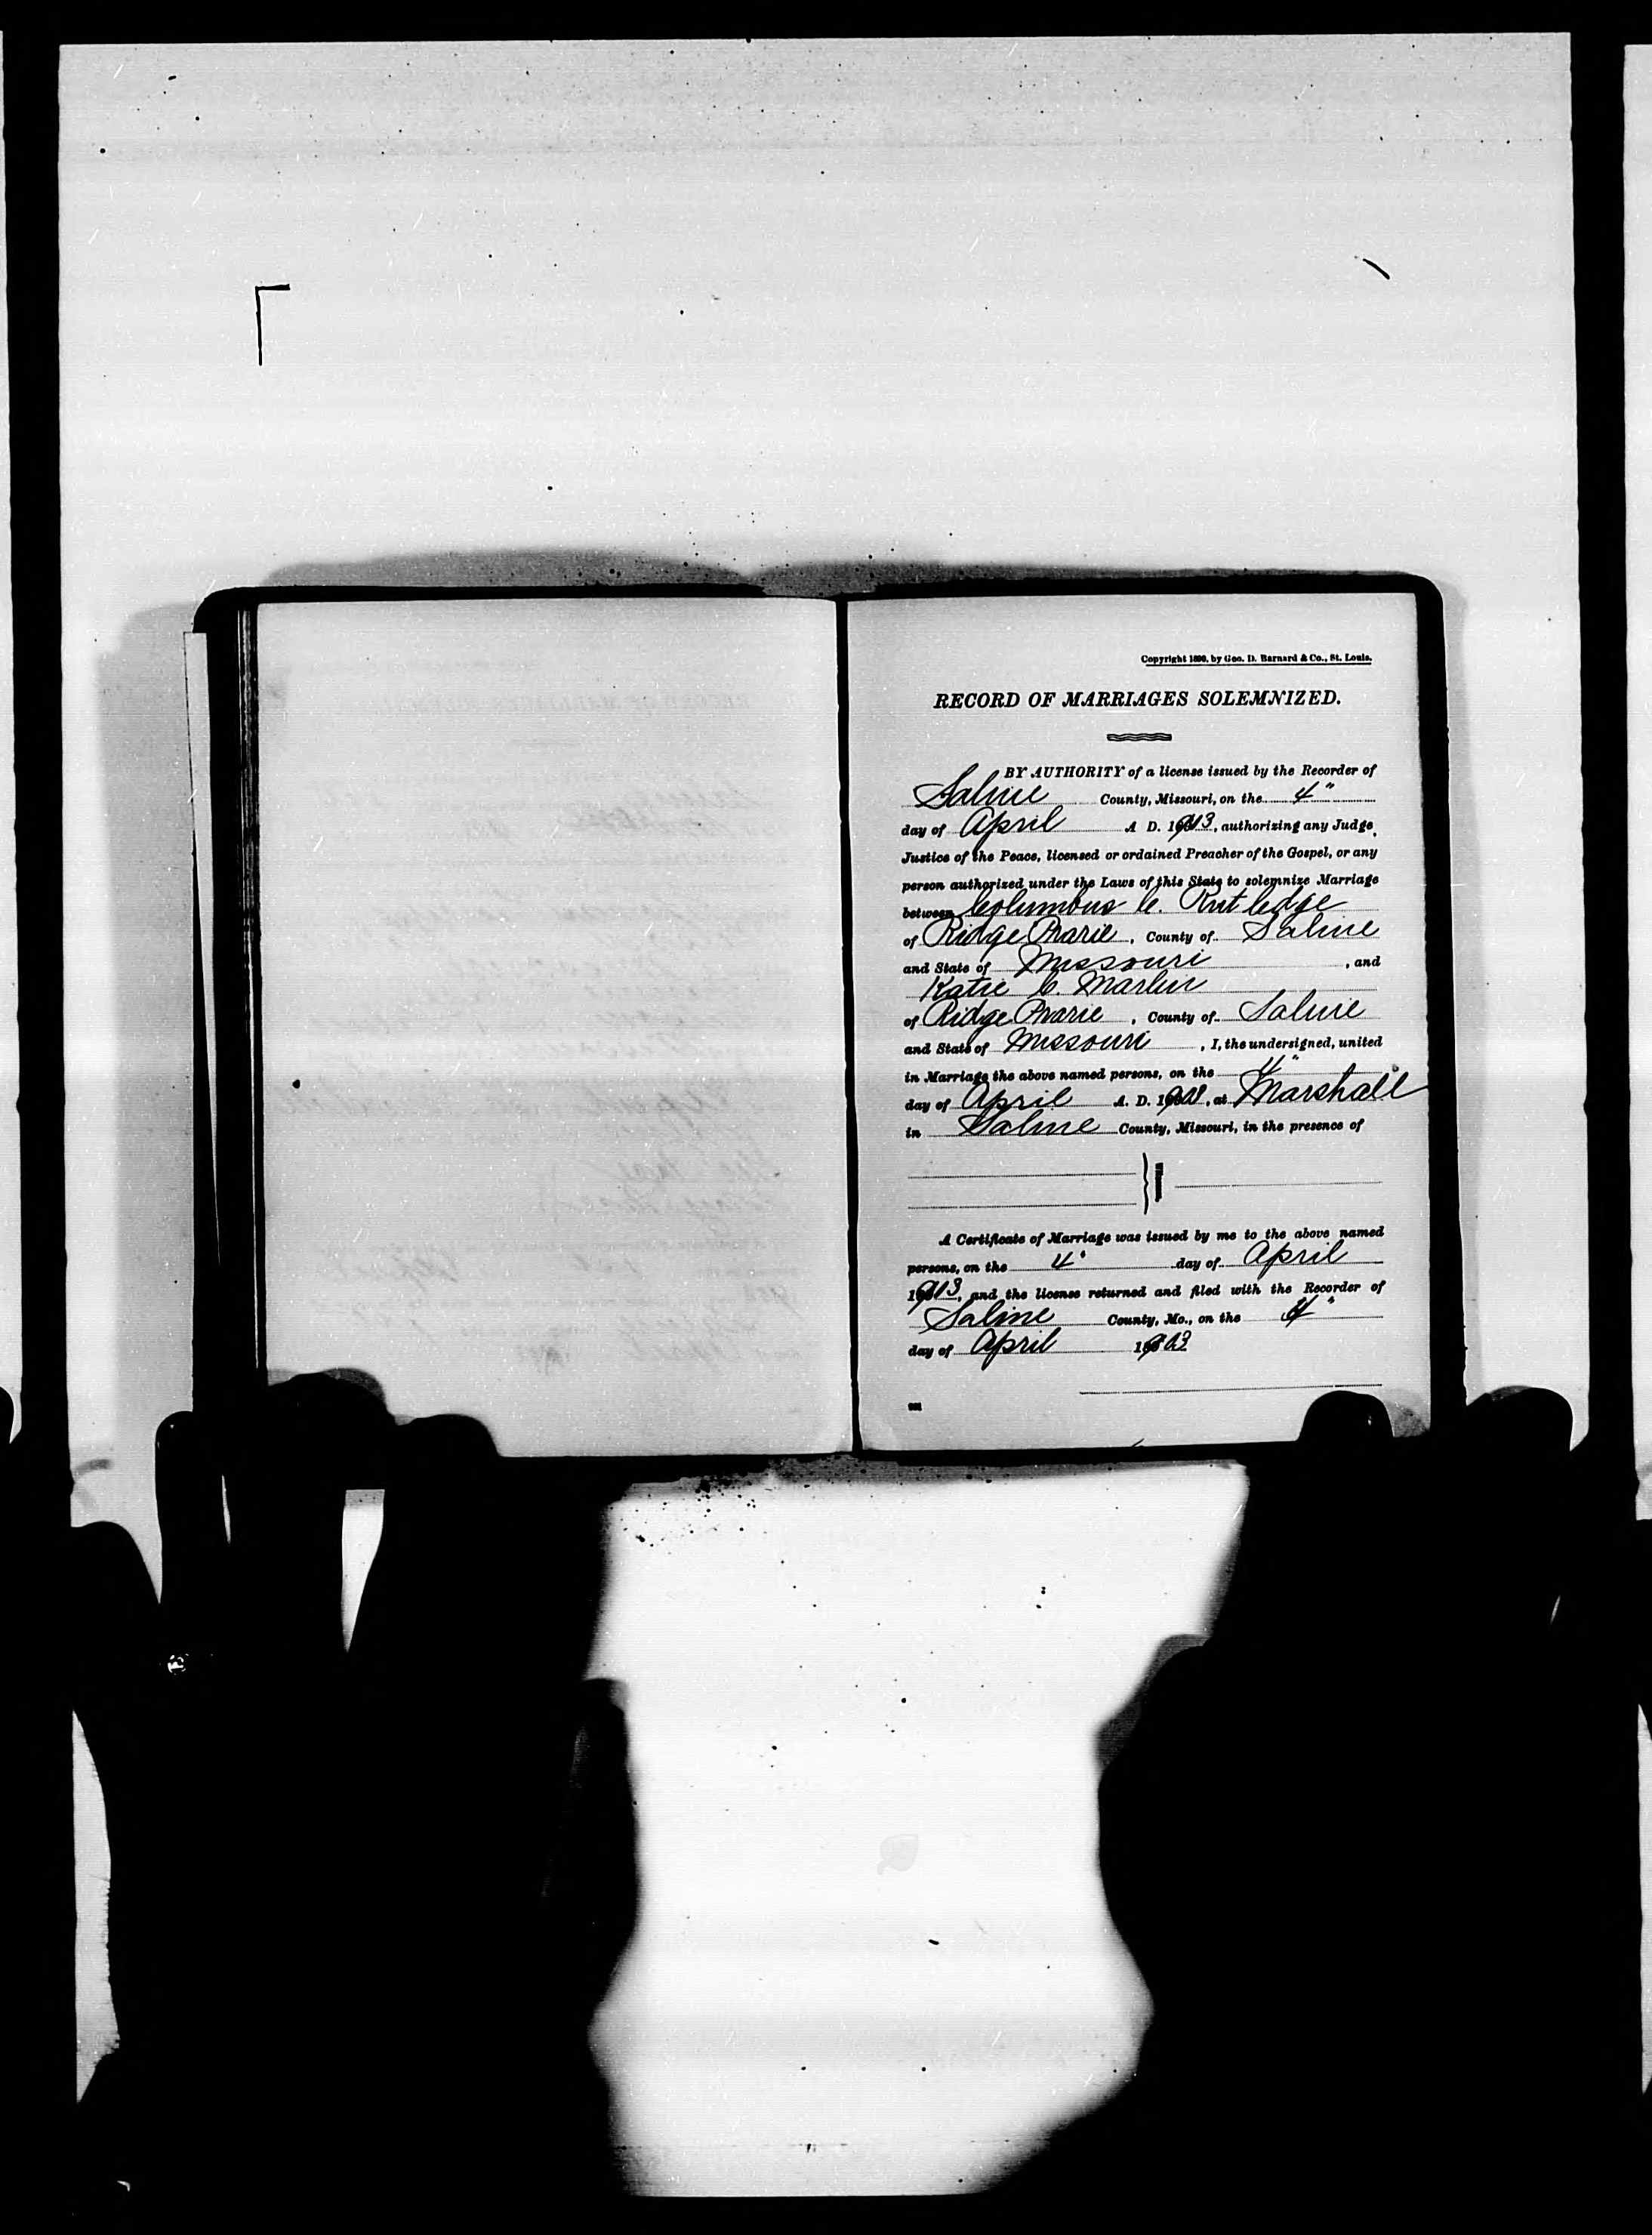 Copyright 1890, by Geo. D. Barnard & Co., St. Louis.
RECORD OF MARRIAGES SOLEMNIZED.
BY AUTHORITY of a license issued by the Recorder of
Saline County, Missouri, on the 4"
day of April A D. 1903, authorizing any Judge,
Justice of the Peace, licensed or ordained Preacher of the Gospel, or any
person authorized under the Laws of this State to solemnize Marriage
between Columbus C. Rutledge
of Ridge Prarie, County of Saline
and State of Missouri, and
Katie C. Marlin
of Ridge Prarie, County of Saline
and State of Missouri, I, the undersigned, united
in Marriage the above named persons, on the 4"
day of April A. D. 1903, at Marshall
in Saline County, Missouri, in the presence of
A Certificate of Marriage was issued by me to the above named
persons, on the 4" day of April
1903, and the license returned and filed with the Recorder of
Saline County, Mo., on the 4"
day of April 1903